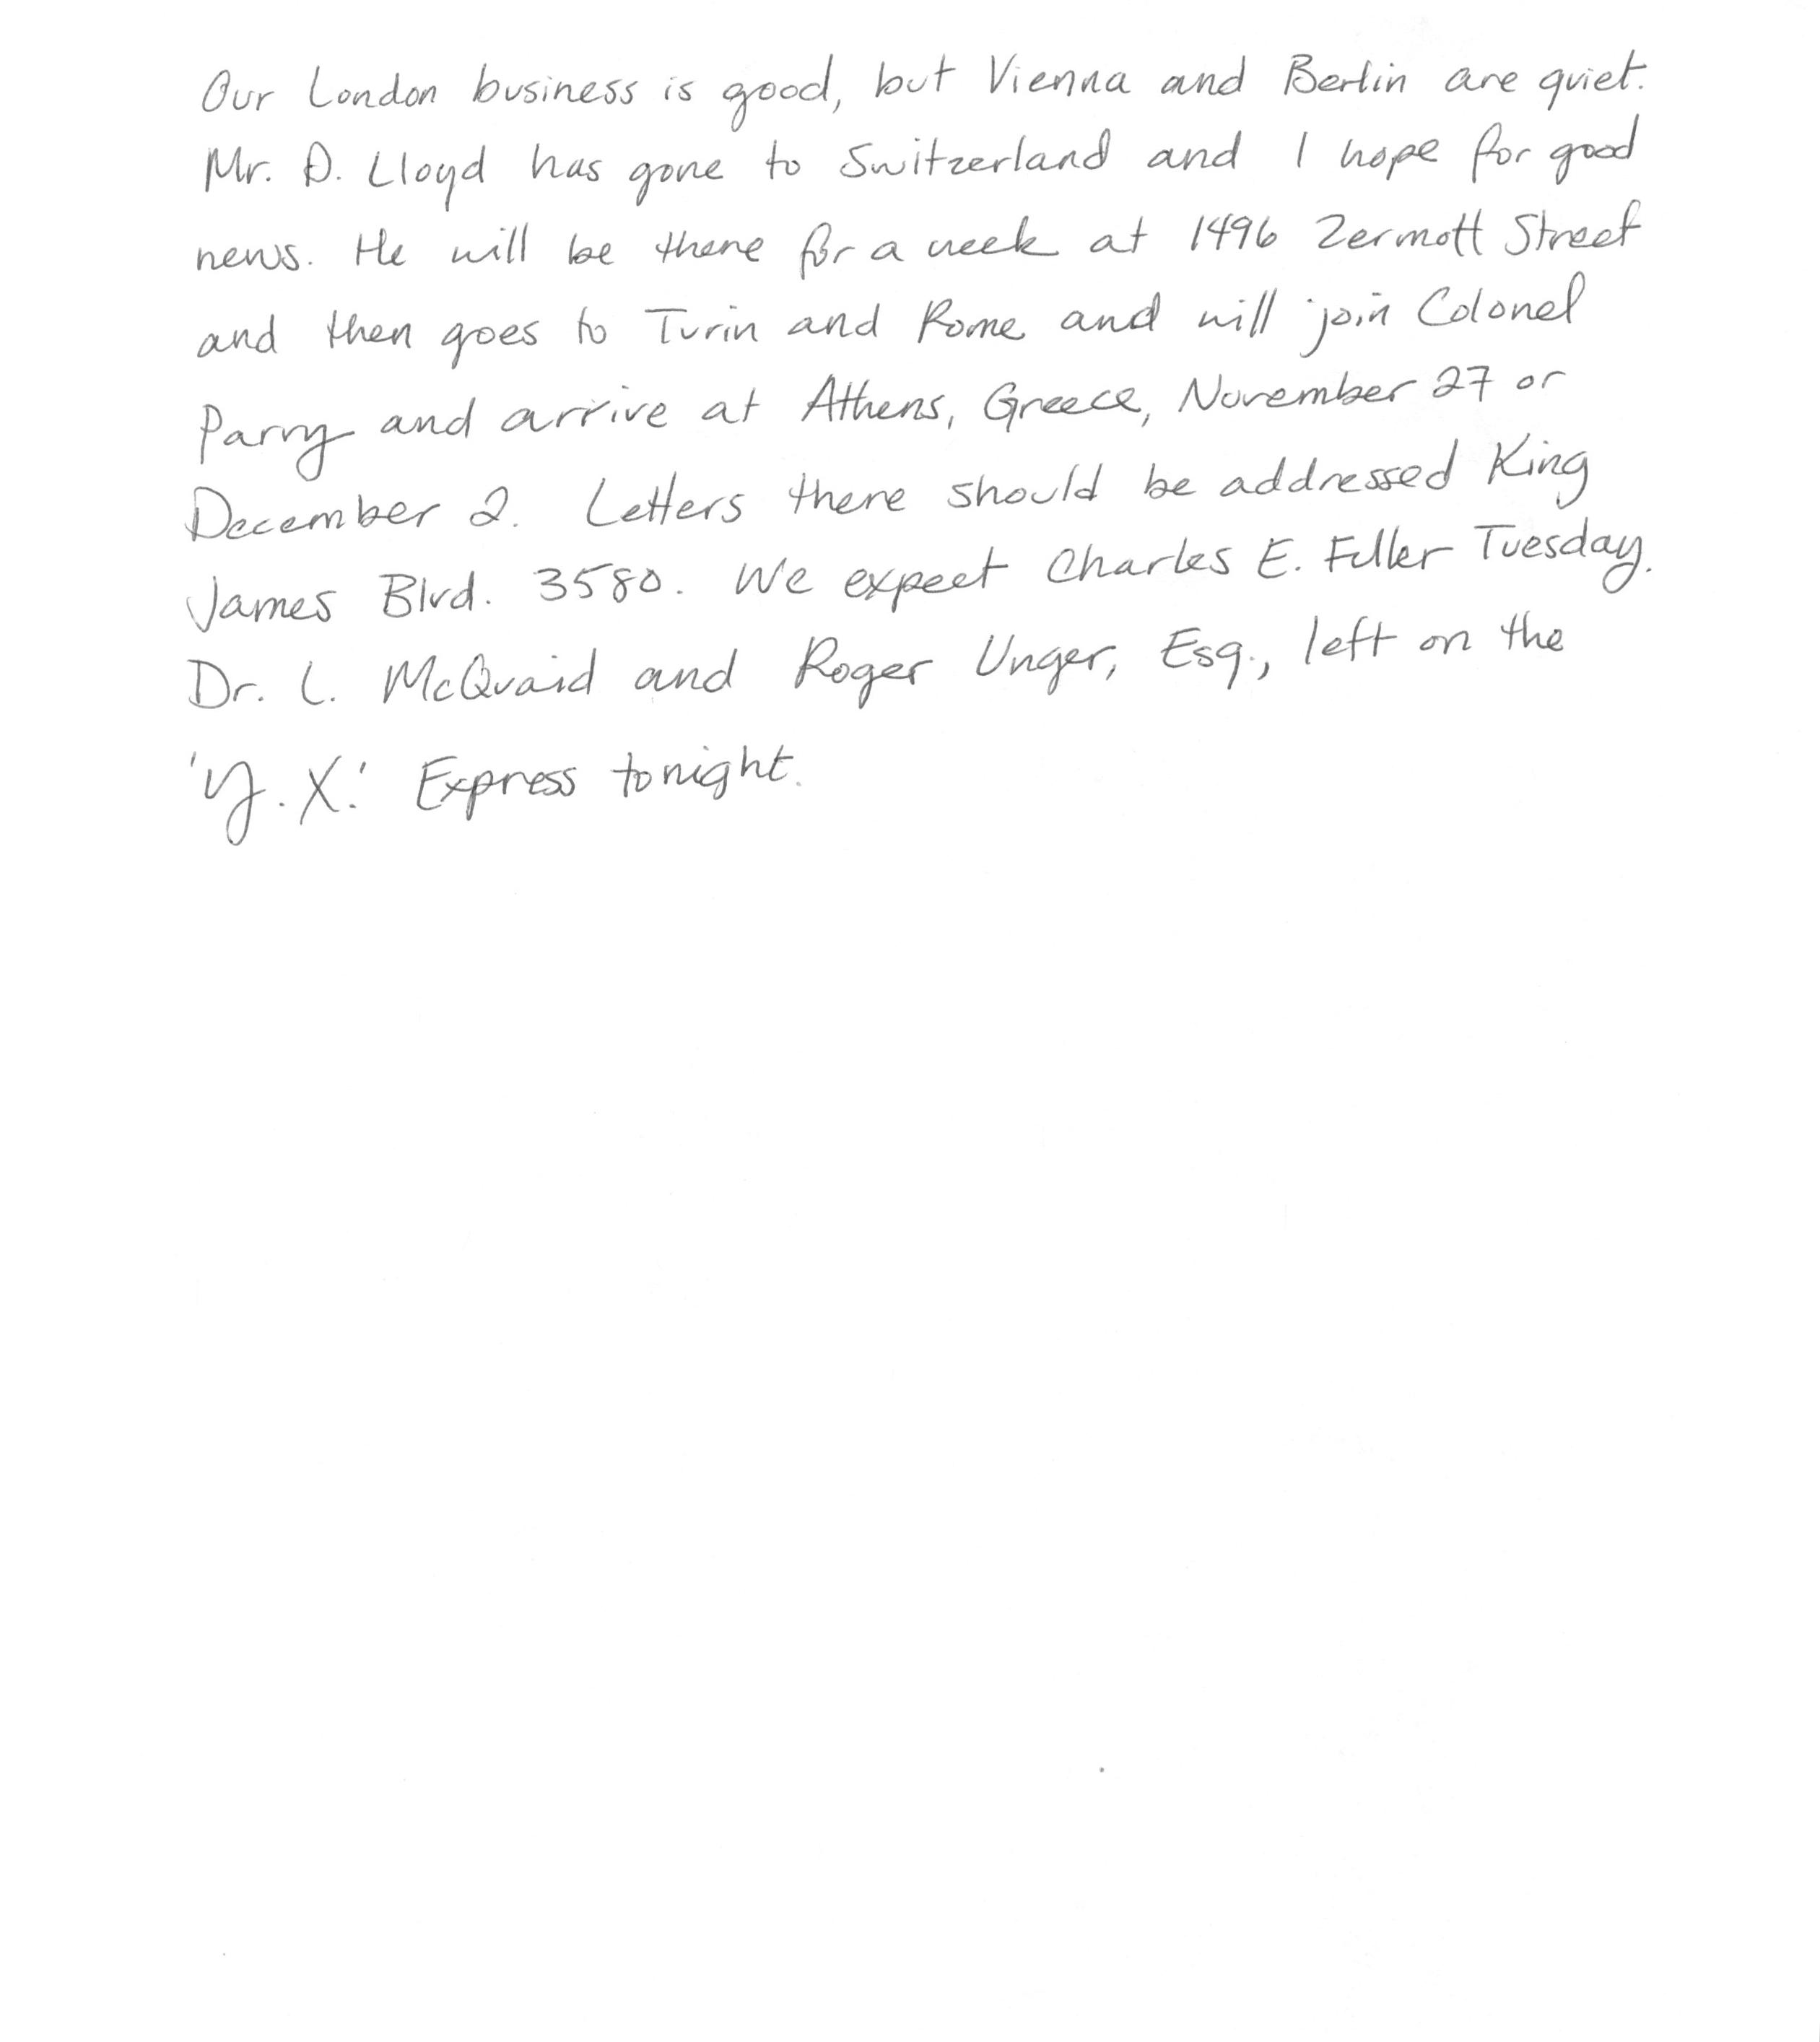 Our London business is good, but Vienna and Berlin are quiet.
Mr. D. Lloyd has gone to Switzerland and I hope for good
news. He will be there for a week at 1496 Zermott Street
and then goes to Turin and Rome and will join Colonel
Parry and arrive at Athens, Greece, November 27 or
December 2. Letters there should be addressed King
James Blvd. 3580. We expect Charles E. Fuller Tuesday.
Dr. L. McQuaid and Roger Unger, Esq., left on the
'Y. X.' Express tonight.